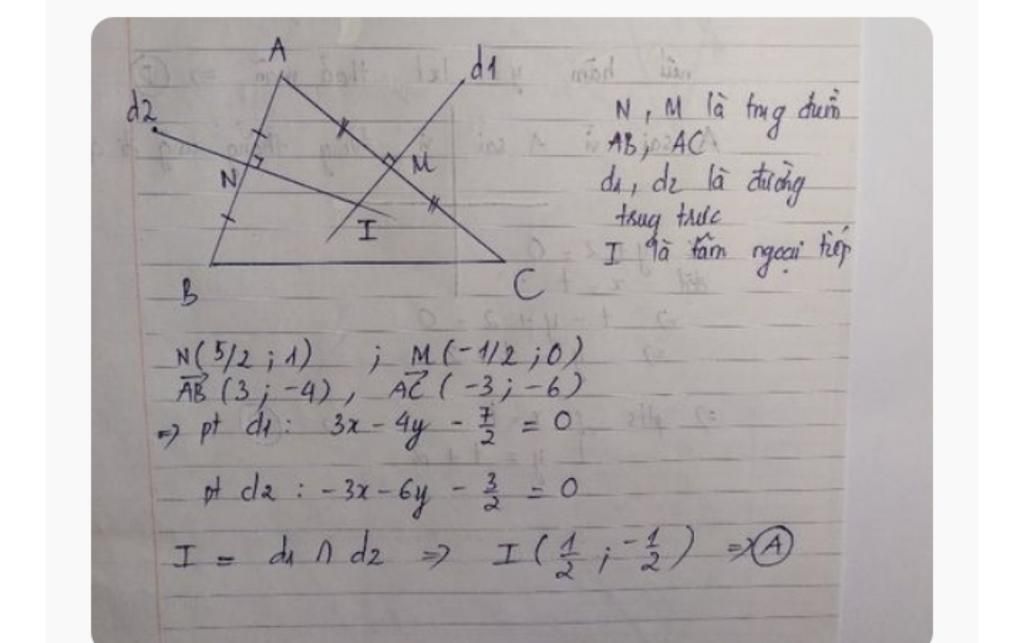 A
d1
d2
N
M
I
B
C
N, M là trug điểm
AB, AC
d1, d2 là đường
trug trực
I là tâm ngoại tiếp
N(5/2 ; 1) ; M(-1/2 ; 0)
AB (3 ; -4), AC (-3 ; -6)
=> pt d1 : 3x - 4y - 7/2 = 0
pt d2 : -3x - 6y - 3/2 = 0
I = d1 ∩ d2 => I(1/2 ; -1/2) => A